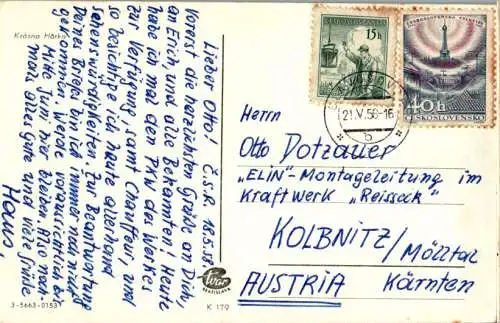 Krásna Hôrka
Č.S.R. 18.5.58
Lieber Otto!
Vorerst die herzlichsten Grüße an Dich,
an Erich, und alle Bekannten! Heute
habe ich mal den PKW des Werkes
zur Verfügung samt Chauffeur, und
so besichtige ich heute allerhand
Sehenswürdigkeiten. Zur Beantwortung
Deines Briefs bin ich immer noch nicht
gekommen. Werde voraussichtlich bis
Mitte Juni hier bleiben. Also noch
mals alles Gute und viele Grüße
Hans,
3-5663-0153
Tvar
BRATISLAVA
K 179
ČESKOSLOVENSKO
15h
ČESKOSLOVENSKÁ TELEVIZE
40h
ČESKOSLOVENSKO
21.V.58-16
b
Herrn
Otto Dotzauer
„ELIN"-Montageleitung im
Kraftwerk „Reisseck"
KOLBNITZ/Mölltal
AUSTRIA Kärnten